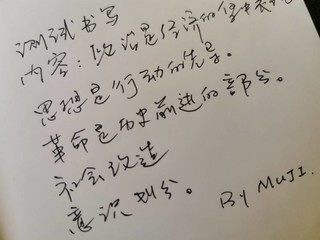 测试书写
内容：政治是经济的集中表
思想是行动的先导。
革命是历史前进的部分。
社会改造
意识划分。
By MUJI.